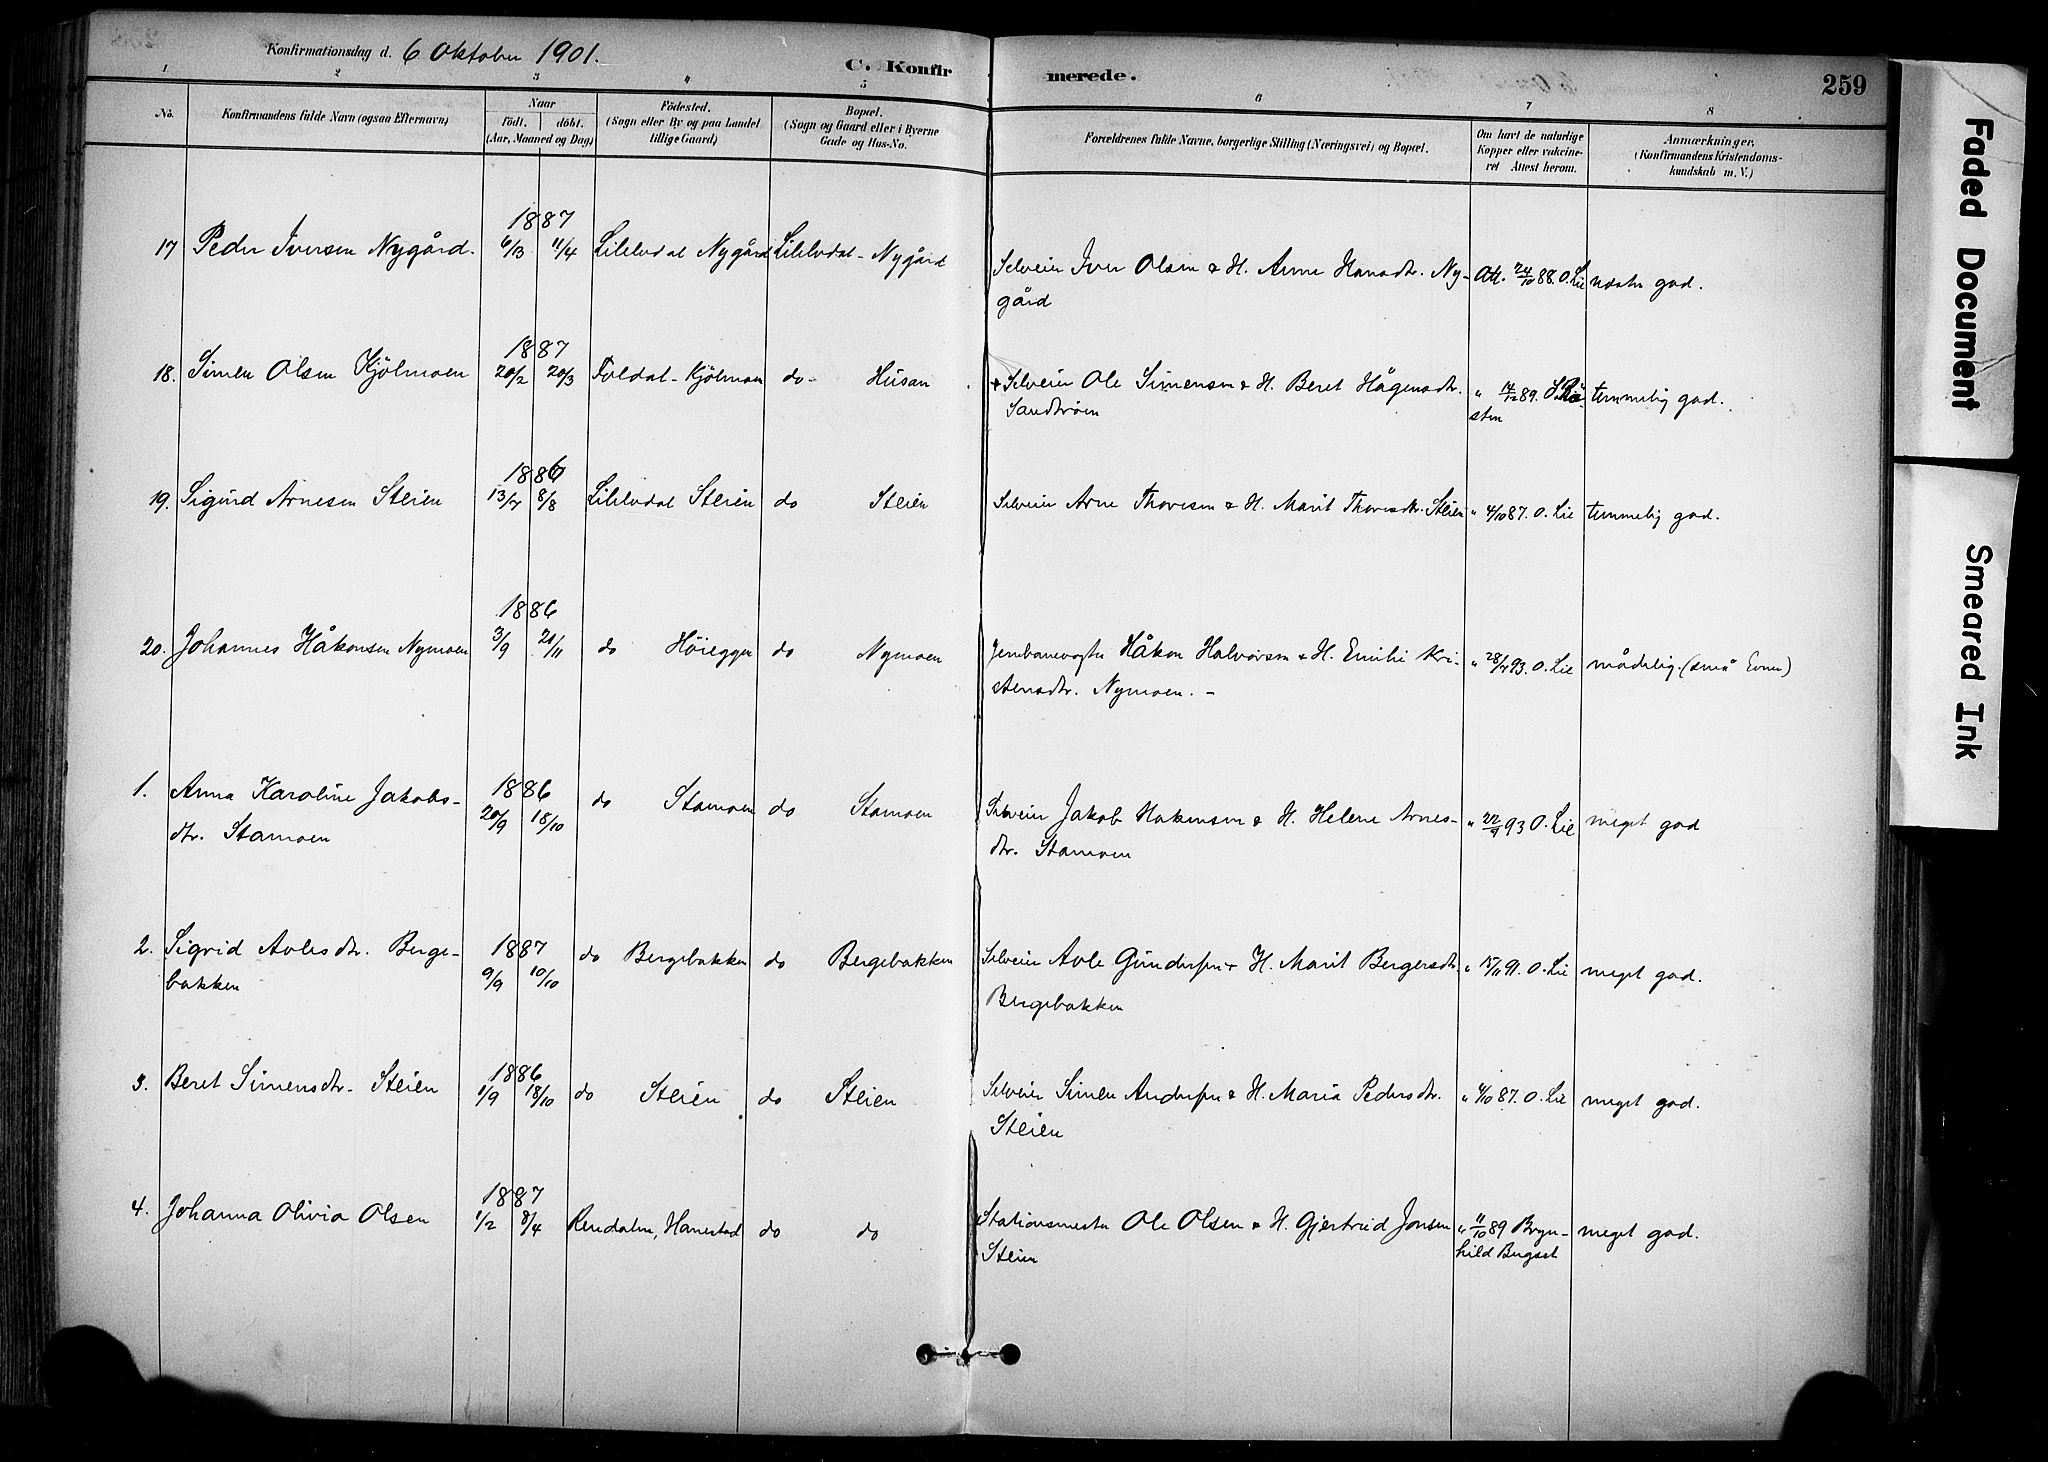 Konfirmationsdag d. 6 Oktober 1901.
C. Konfir merede.
259
1 2 3 " 5 6 7 8
No. Konfirmandens fulde Navn (ogsaa Efternavn) Naar födt. döbt. (Aar, Maaned og Dag) Födested. (Sogn eller By og paa Landet tillige Gaard) Bopæl. (Sogn og Gaard eller i Byerne Gade og Hus-No. Forældrenes fulde Navne, borgerlige Stilling (Næringsvei) og Bopæl. Om havt de naturlige Kopper eller vakcineret Attest herom. Anmærkninger, (Konfirmandens Kristendomskundskab m. V.)
1887
17 Peder Iversen Nygård. 6/13 11/4 Lilelvdal Nygård Lilelvdal - Nygård Selveier Iver Olsen & H. Anne Hansdtr. Ny- Att. 24/10 88. O. Lie næsten god.
gård
1887
18. Simen Olsen Kjölmoen 20/2 20/3 Foldal - Kjölmoen do - Husan Selveier Ole Simensen & H. Beret Hågensdtr. " 14/12 89. temmelig god.
Sandtrøen sten
1886
19. Sigurd Arnesen Steien 13/7 8/8 Lilelvdal Steien do Steien Selveier Arne Thoresen & H. Marit Thoresdtr. Steien " 4/10 87. O. Lie temmelig god.
1886
20. Johannes Håkonsen Nymoen 3/9 20/11 do Höiegger do Nymoen Jernbanevogter Håkon Halvorsen & H. Emilie Kri- " 28/7 93. O. Lie mådelig. (små Evner)
stensdtr. Nymoen. -
1886
1. Anna Karoline Jakobs- 20/9 18/10 do Stamoen do Stamoen Selveier Jakob Hakensen & H. Helene Arnes- " 22/9 93 O. Lie meget god
dtr. Stamoen dtr. Stamoen
1887
2. Sigrid Avlesdtr. Berge- 9/9 10/10 do Bergebakken do Bergebakken Selveier Avle Gundersen & H. Marit Bergersdtr. " 15/11 91. O. Lie meget god.
bakken Bergebakken
1886
3. Beret Simensdtr. Steien 1/9 18/10 do Steien do Steien Selveier Simen Andersen & H. Maria Pedersdtr. " 4/10 87. O. Lie meget god.
Steien
1887
4. Johanna Olivia Olsen 1/2 8/4 Rendalen, Hanestad do do Stationsmester Ole Olsen & H. Gjertrud Jonsen " 11/10 89 Bryn- meget god.
Steien hild Bergset
Faded Document
Smeared Ink